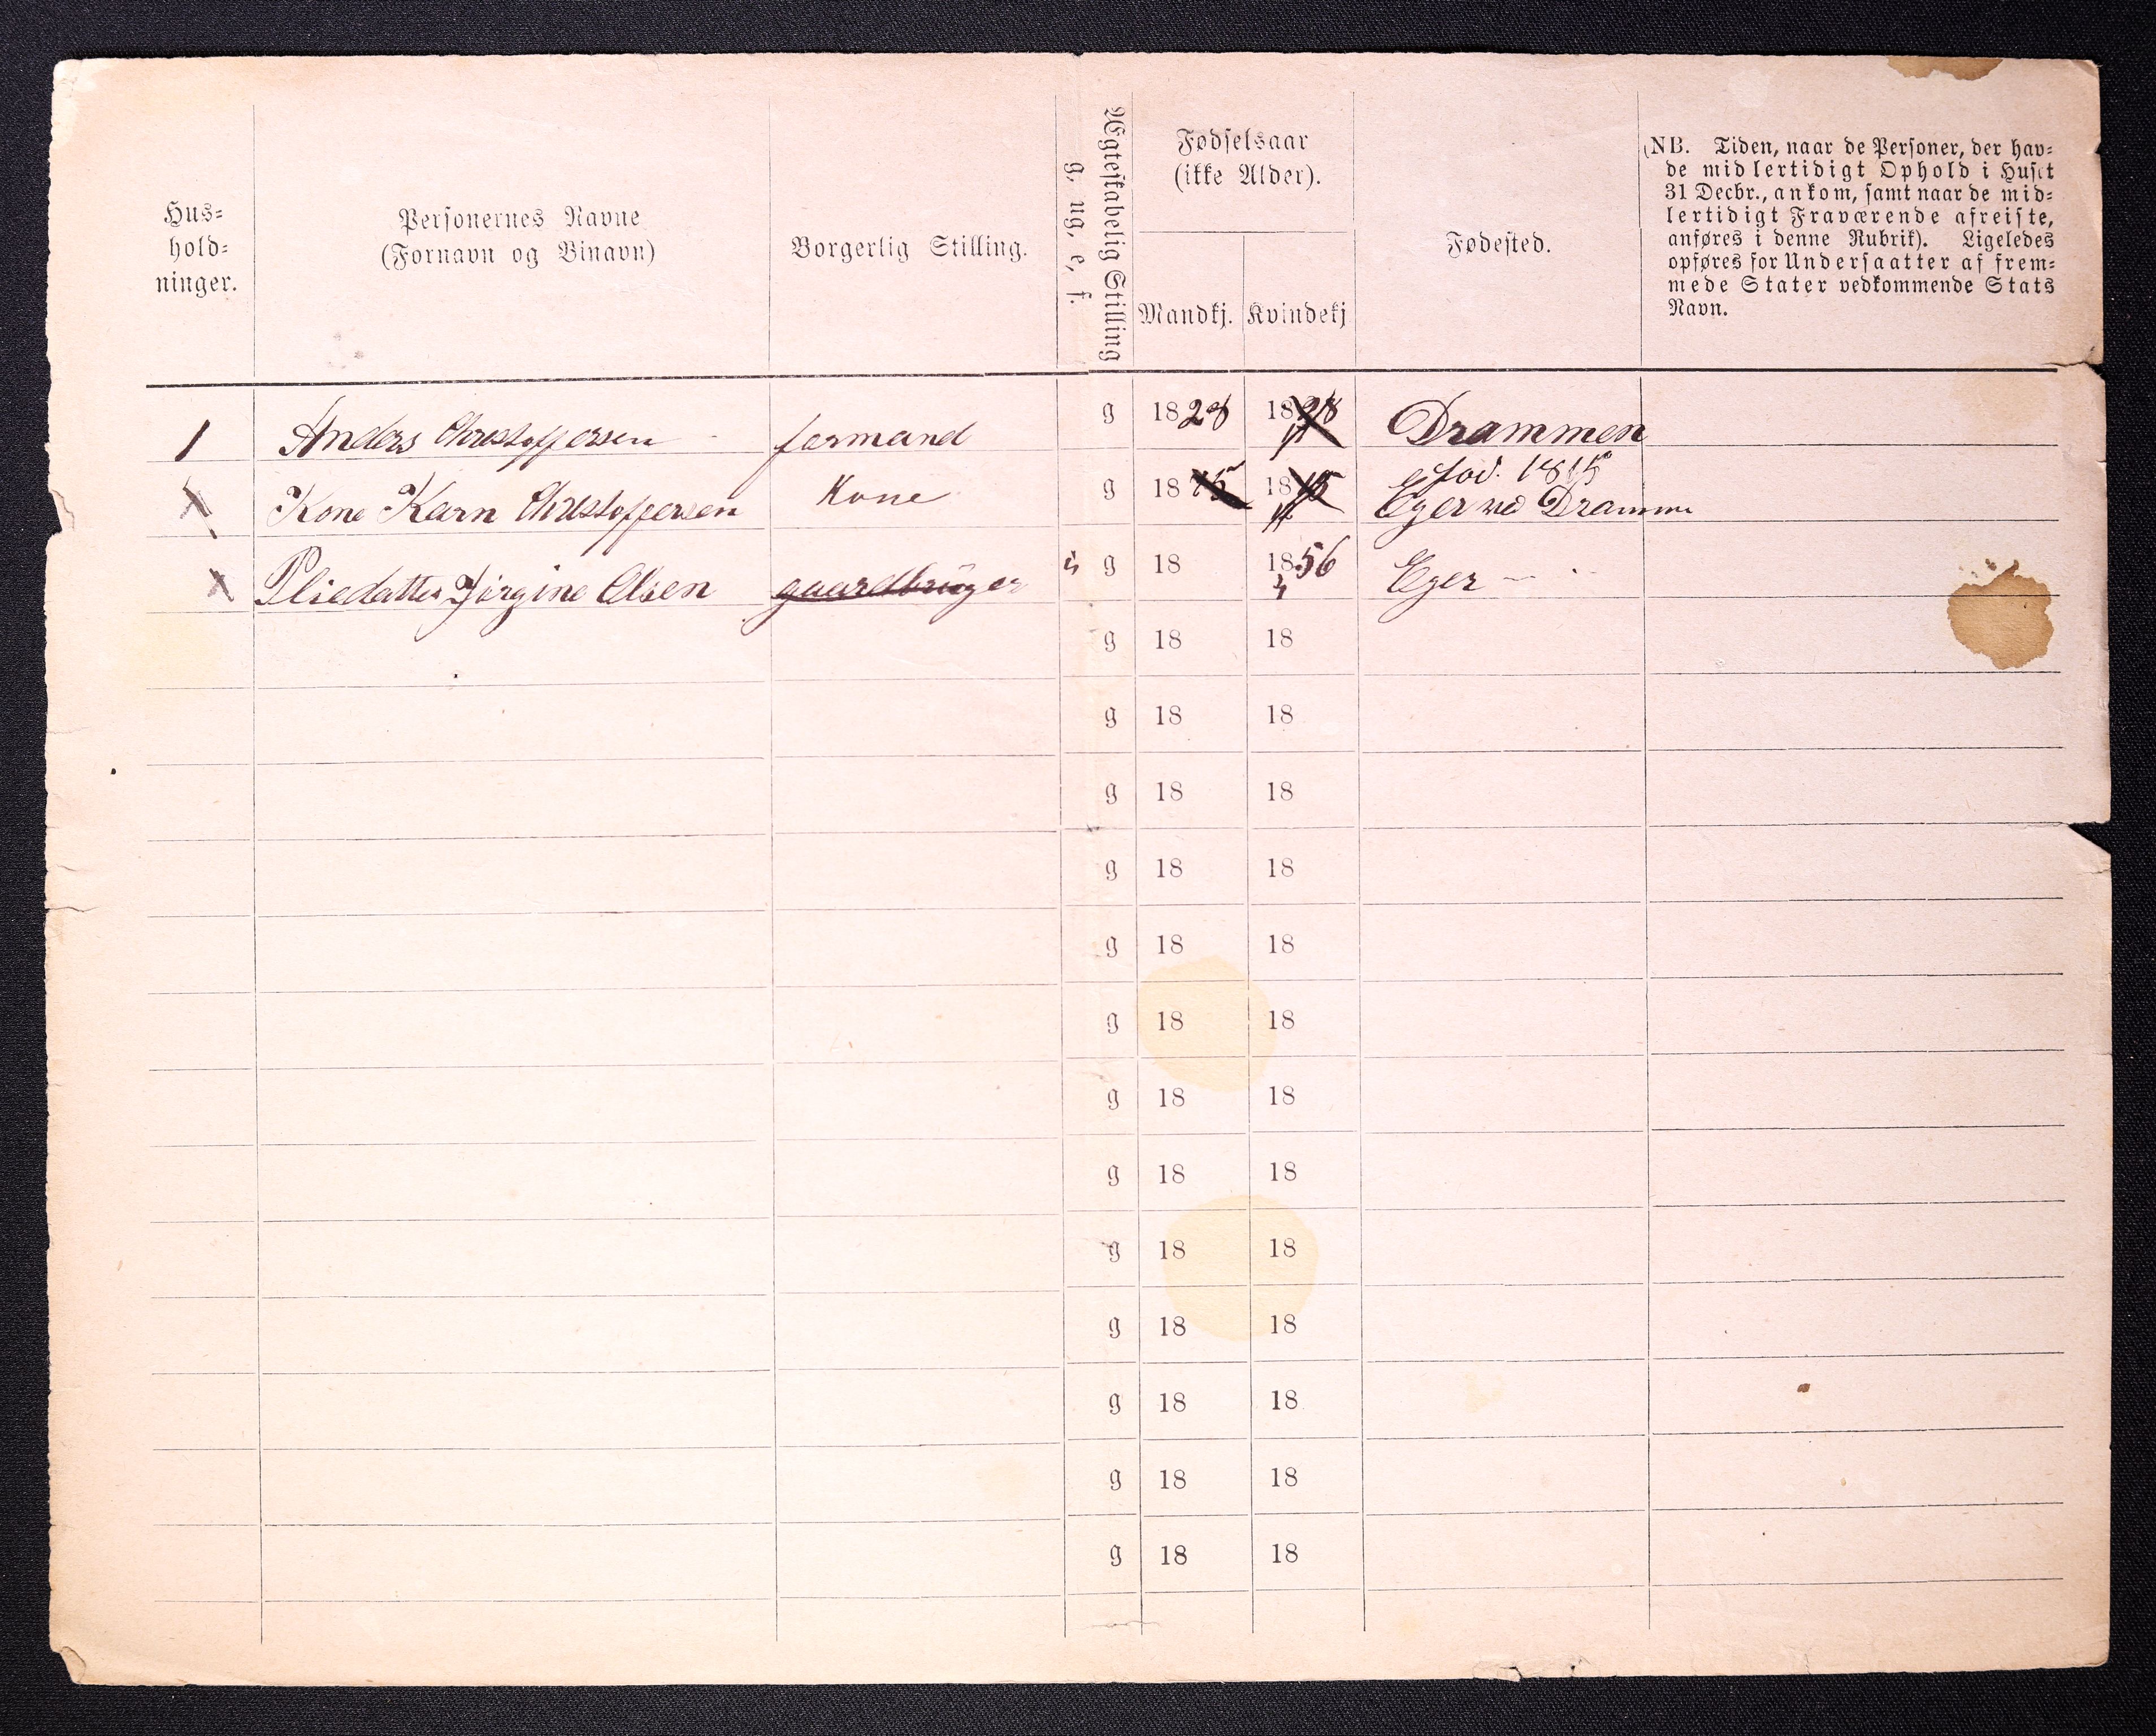 Hus=
hold=
ninger.
Personernes Navne
(Fornavn og Binavn)
Borgerlig Stilling.
Ægteskabelig Stilling
g, ug, e, f.
Fødselsaar
(ikke Alder).
Mandkj. Kvindekj
Fødested.
(NB. Tiden, naar de Personer, der hav=
de midlertidigt Ophold i Huset
31 Decbr., ankom, samt naar de mid=
lertidigt Fraværende afreiste,
anføres i denne Rubrik). Ligeledes
opføres for Undersaatter af frem=
mede Stater vedkommende Stats
Navn.
1 Anders Christoffersen formand g 1828 1828 Drammen
fød. 1815
X Kone Karn Christoffersen Kone g 1815 1815 Eger ved Dramme
X Pliedatter Jørgine Olsen gaardbruger g 18 1856 Eger
g 18 18
g 18 18
g 18 18
g 18 18
g 18 18
g 18 18
g 18 18
g 18 18
g 18 18
g 18 18
g 18 18
g 18 18
g 18 18